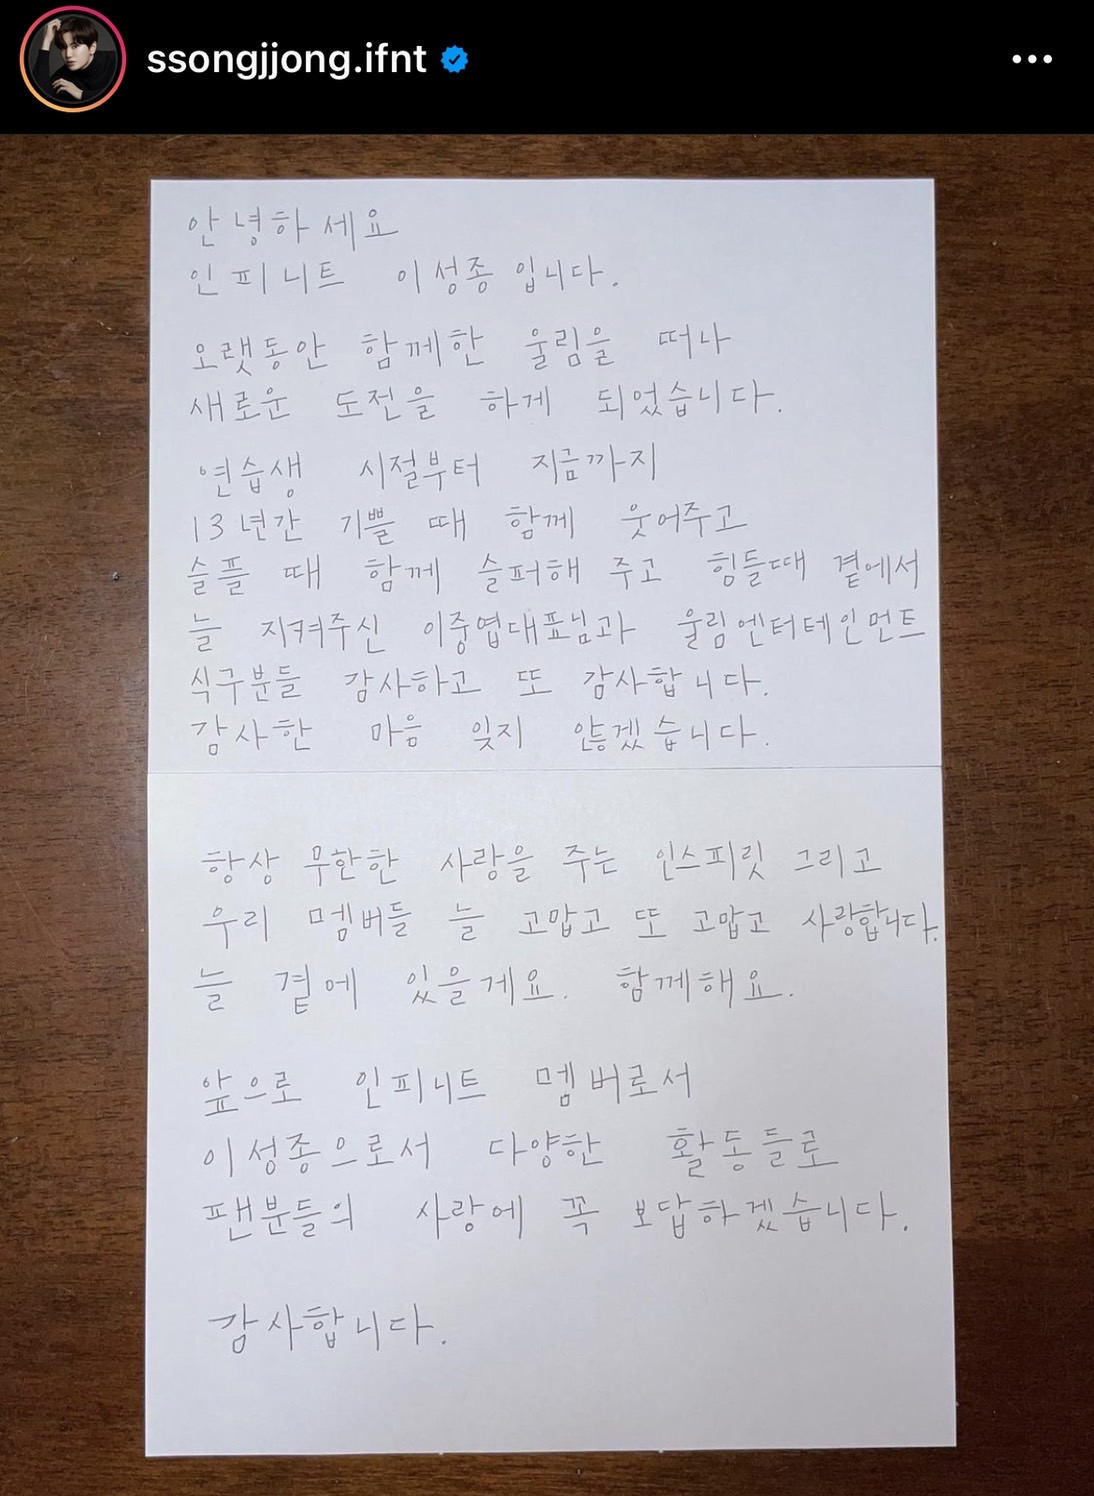 ssongjjong.ifnt
안녕하세요
인피니트 이성종입니다.
오랫동안 함께한 울림을 떠나
새로운 도전을 하게 되었습니다.
연습생 시절부터 지금까지
13년간 기쁠 때 함께 웃어주고
슬플 때 함께 슬퍼해 주고 힘들때 곁에서
늘 지켜주신 이중엽대표님과 울림엔터테인먼트
식구분들 감사하고 또 감사합니다.
감사한 마음 잊지 않겠습니다.
항상 무한한 사랑을 주는 인스피릿 그리고
우리 멤버들 늘 고맙고 또 고맙고 사랑합니다.
늘 곁에 있을게요. 함께해요.
앞으로 인피니트 멤버로서
이성종으로서 다양한 활동들로
팬분들의 사랑에 꼭 보답하겠습니다.
감사합니다.